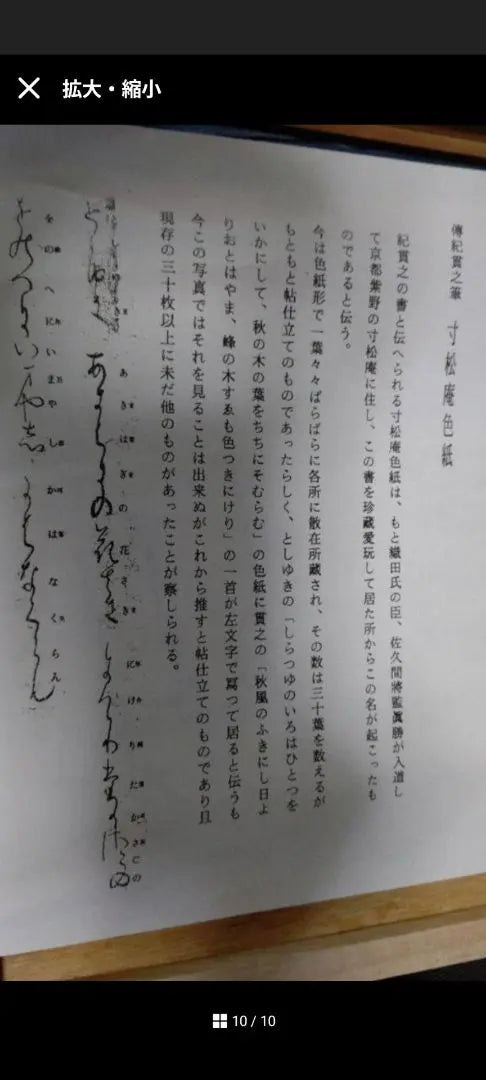 拡大・縮小
傳紀貫之筆 寸松庵色紙
紀貫之の書と伝へられる寸松庵色紙は、もと織田氏の臣、佐久間將監眞勝が入道し
て京都紫野の寸松庵に住し、この書を珍蔵愛玩して居た所からこの名が起こったも
のであると伝う。
今は色紙形で一葉々々ばらばらに各所に散在所蔵され、その数は三十葉を数えるが
もともと帖仕立てのものであったらしく、としゆきの「しらつゆのいろはひとつを
いかにして、秋の木の葉をちぢにそむらむ」の色紙に貫之の「秋風のふきにし日よ
りおとはやま、峰の木すゑも色つきにけり」の一首が左文字で寫つて居ると伝うも
今この写真ではそれを見ることは出来ぬがこれから推すと帖仕立てのものであり且
現存の三十枚以上に未だ他のものがあったことが察しられる。
あきはぎの花さきにけりたかさごの
をのへにいまやしかはなくらん
10 / 10